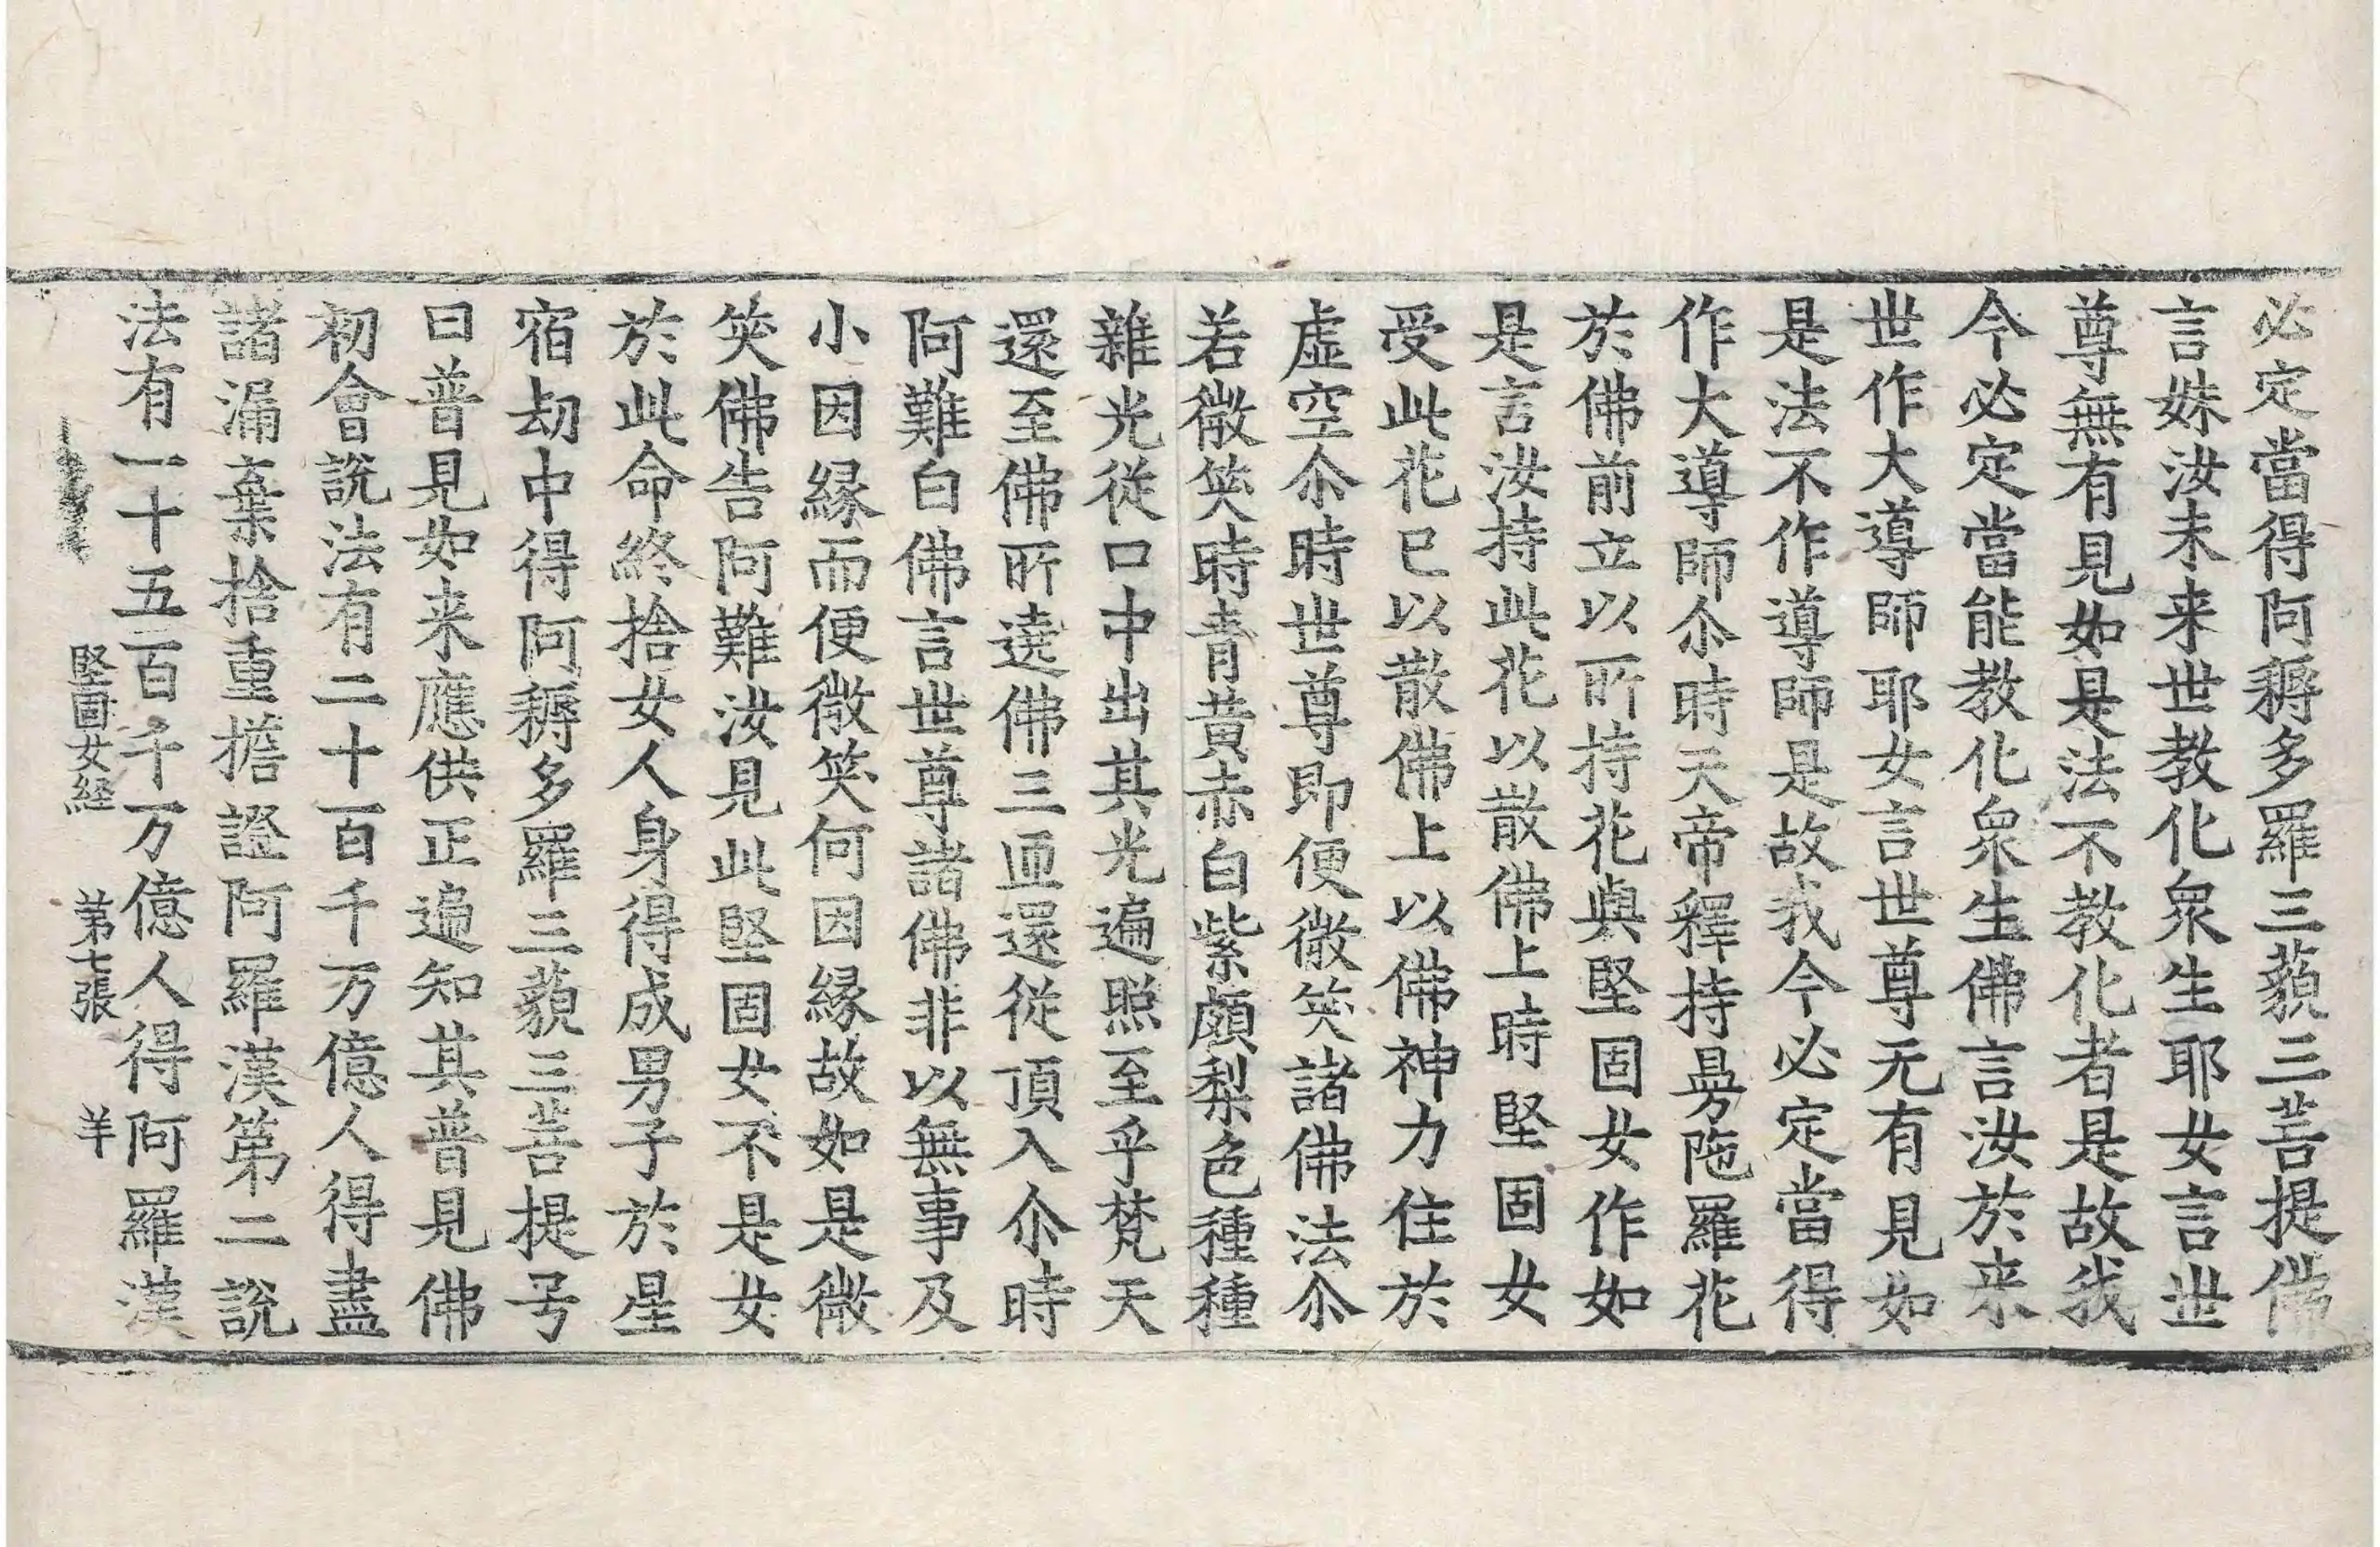 必定當得阿耨多羅三藐三菩提佛
言姝汝未来世教化衆生耶女言世
尊無有見如是法不教化者是故我
今必定當能教化衆生佛言汝於来
世作大導師耶女言世尊无有見如
是法不作導師是故我今必定當得
作大導師尒時天帝釋持曼陁羅花
於佛前立以所持花與堅固女作如
是言汝持此花以散佛上時堅固女
受此花已以散佛上以佛神力住於
虛空尒時世尊即便微笑諸佛法尒
若微笑時青黃赤白紫頗梨色種種
雜光從口中出其光遍照至乎梵天
還至佛所遶佛三匝還從頂入尒時
阿難白佛言世尊諸佛非以無事及
小因緣而便微笑何因緣故如是微
笑佛告阿難汝見此堅固女不是女
於此命終捨女人身得成男子於星
宿劫中得阿耨多羅三藐三菩提号
曰普見如来應供正遍知其普見佛
初會說法有二十百千万億人得盡
諸漏棄捨重擔證阿羅漢第二說
法有一十五百千万億人得阿羅漢
堅固女経 第七張 羊